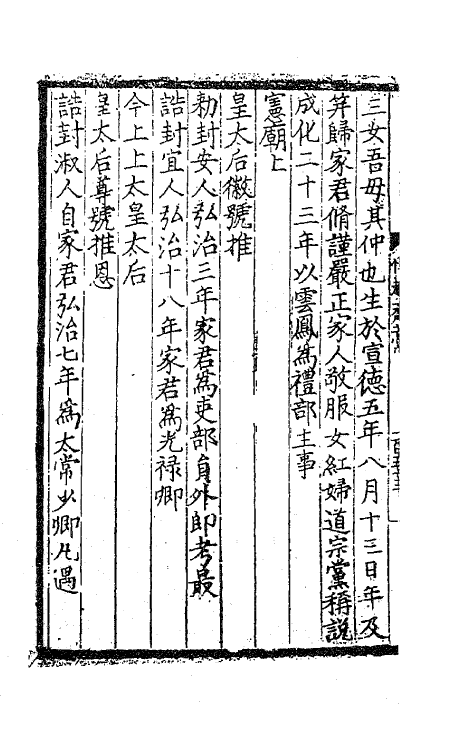 三女吾母其仲也生於宣德五年八月十三日年及
笄歸家君脩謹嚴正家人敬服女紅婦道宗黨稱説
成化二十三年以雲鳳為禮部主事
憲廟上
皇太后徽號推
勑封安人弘治三年家君為吏部員外郎考最
誥封宜人弘治十八年家君為光禄卿
今上上太皇太后
皇太后尊號推恩
誥封淑人自家君弘治七年為太常少卿凡遇